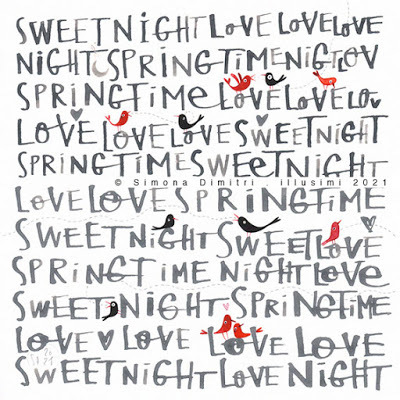 SWEETNIGHT LOVE LOVELOVE
NIGHT SPRINGTIMENIGTLOV
SPRINGTIME LOVELOVELOV
LOVE LOVE LOVE SWEETNIGHT
SPRINGTIMESWEETNIGHT
© Simona Dimitri . illusimi 2021
LOVELOVE SPRINGTIME
SWEETNIGHT SWEETLOVE
SPRINGTIME NIGHTLOVE
SWEET NIGHT SPRINGTIME
LOVE LOVE LOVE LOVE
SWEETNIGHTLOVENIGHT